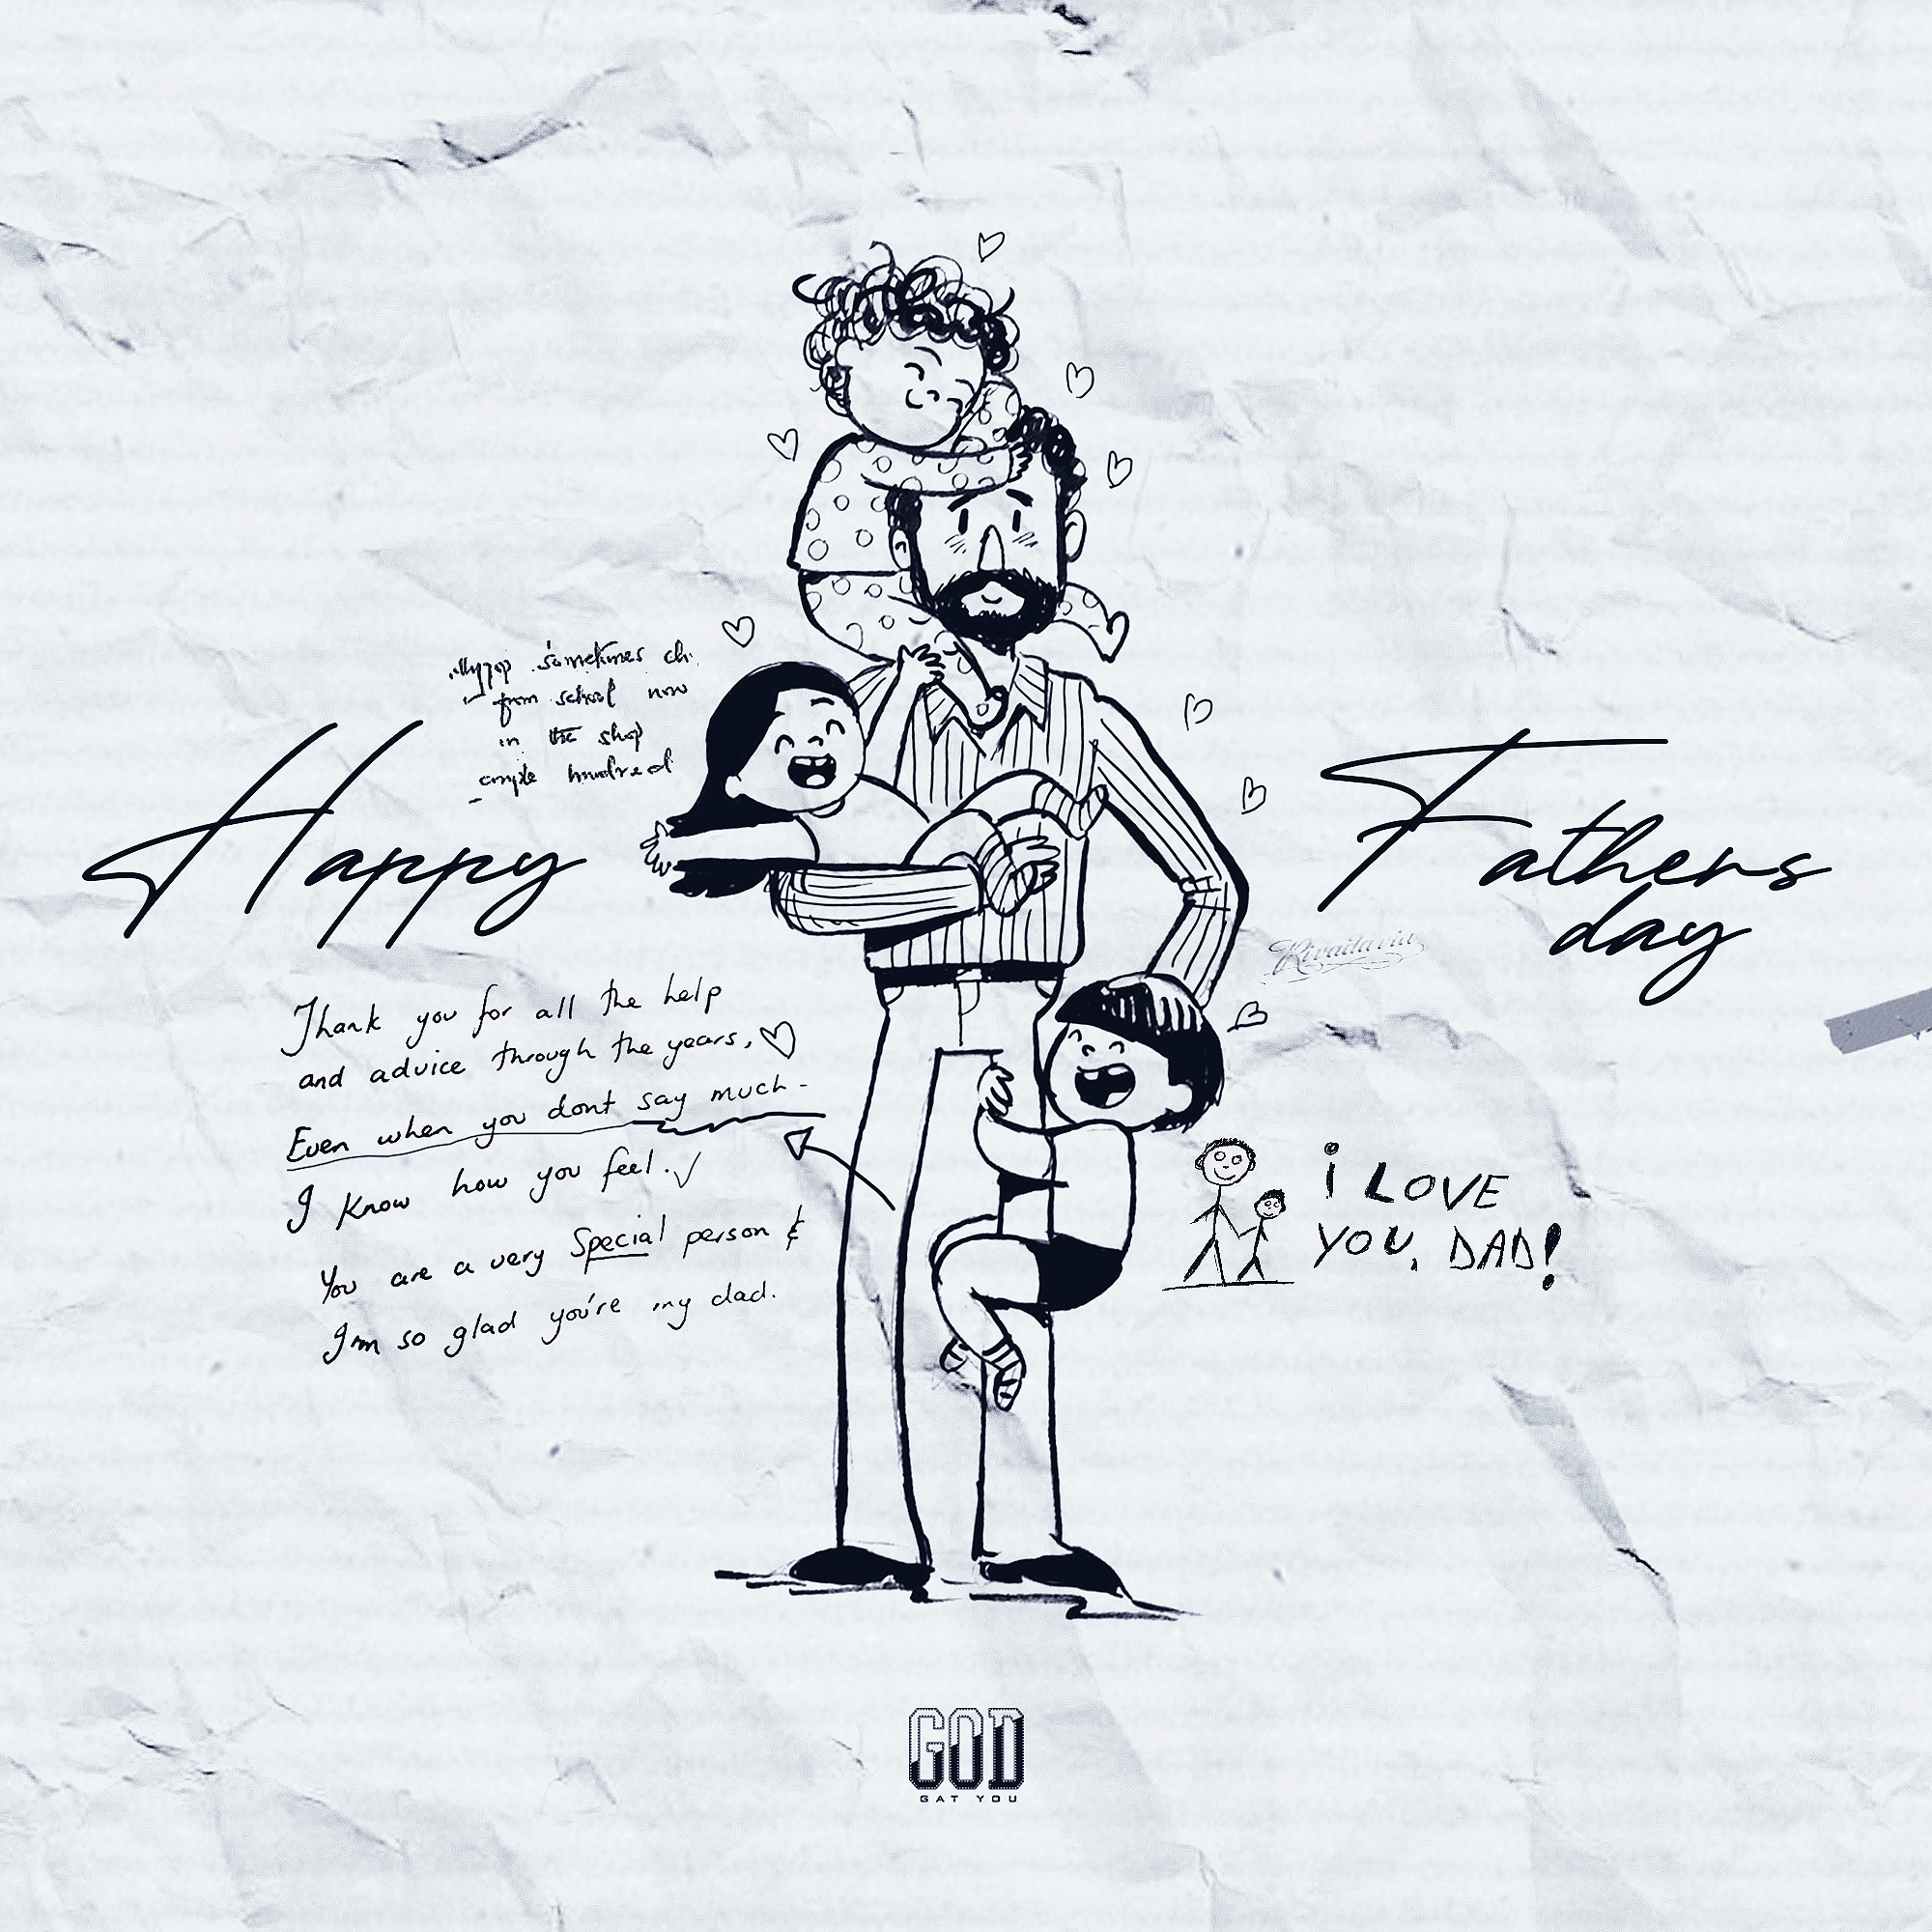 sometimes
from school now
in the shop
hundred
Happy
Fathers
day
Rivadavia
Thank you for all the help
and advice through the years,
Even when you dont say much-
I know how you feel.
You are a very Special person &
I'm so glad you're my dad.
i LOVE
YOU, DAD!
GOD
GAT YOU